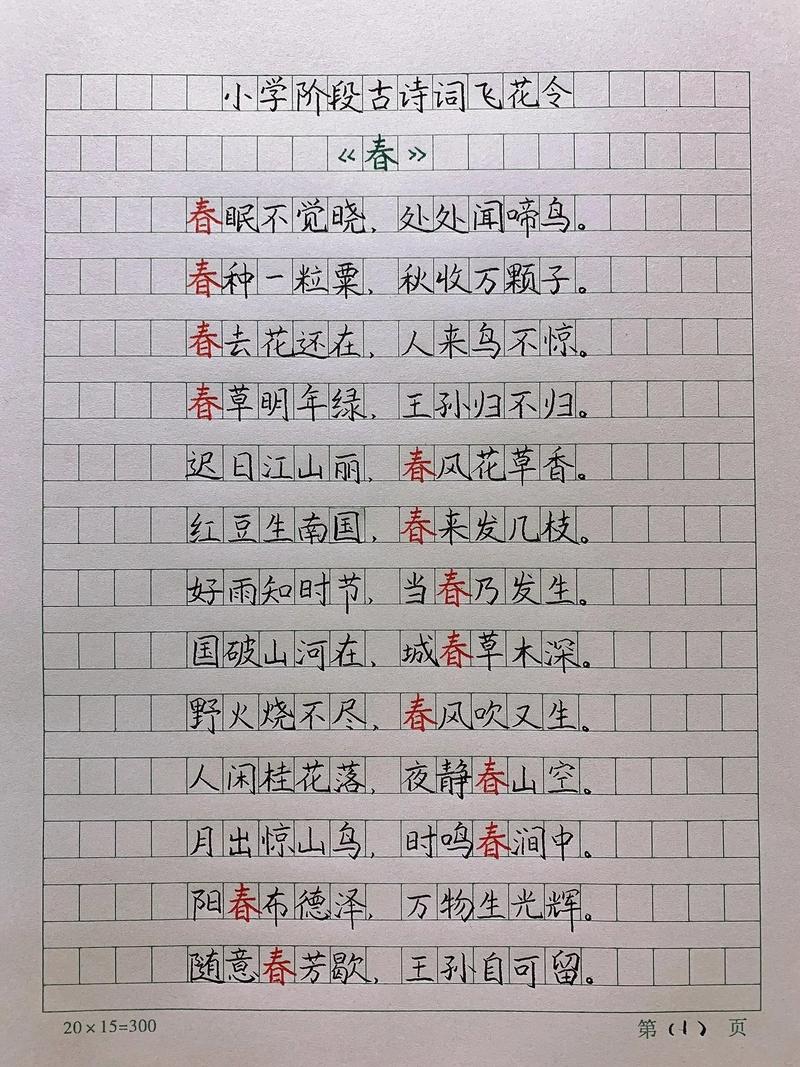 小学阶段古诗词飞花令
《春》
春眠不觉晓，处处闻啼鸟。
春种一粒粟，秋收万颗子。
春去花还在，人来鸟不惊。
春草明年绿，王孙归不归。
迟日江山丽，春风花草香。
红豆生南国，春来发几枝。
好雨知时节，当春乃发生。
国破山河在，城春草木深。
野火烧不尽，春风吹又生。
人闲桂花落，夜静春山空。
月出惊山鸟，时鸣春涧中。
阳春布德泽，万物生光辉。
随意春芳歇，王孙自可留。
20×15=300 第(1)页